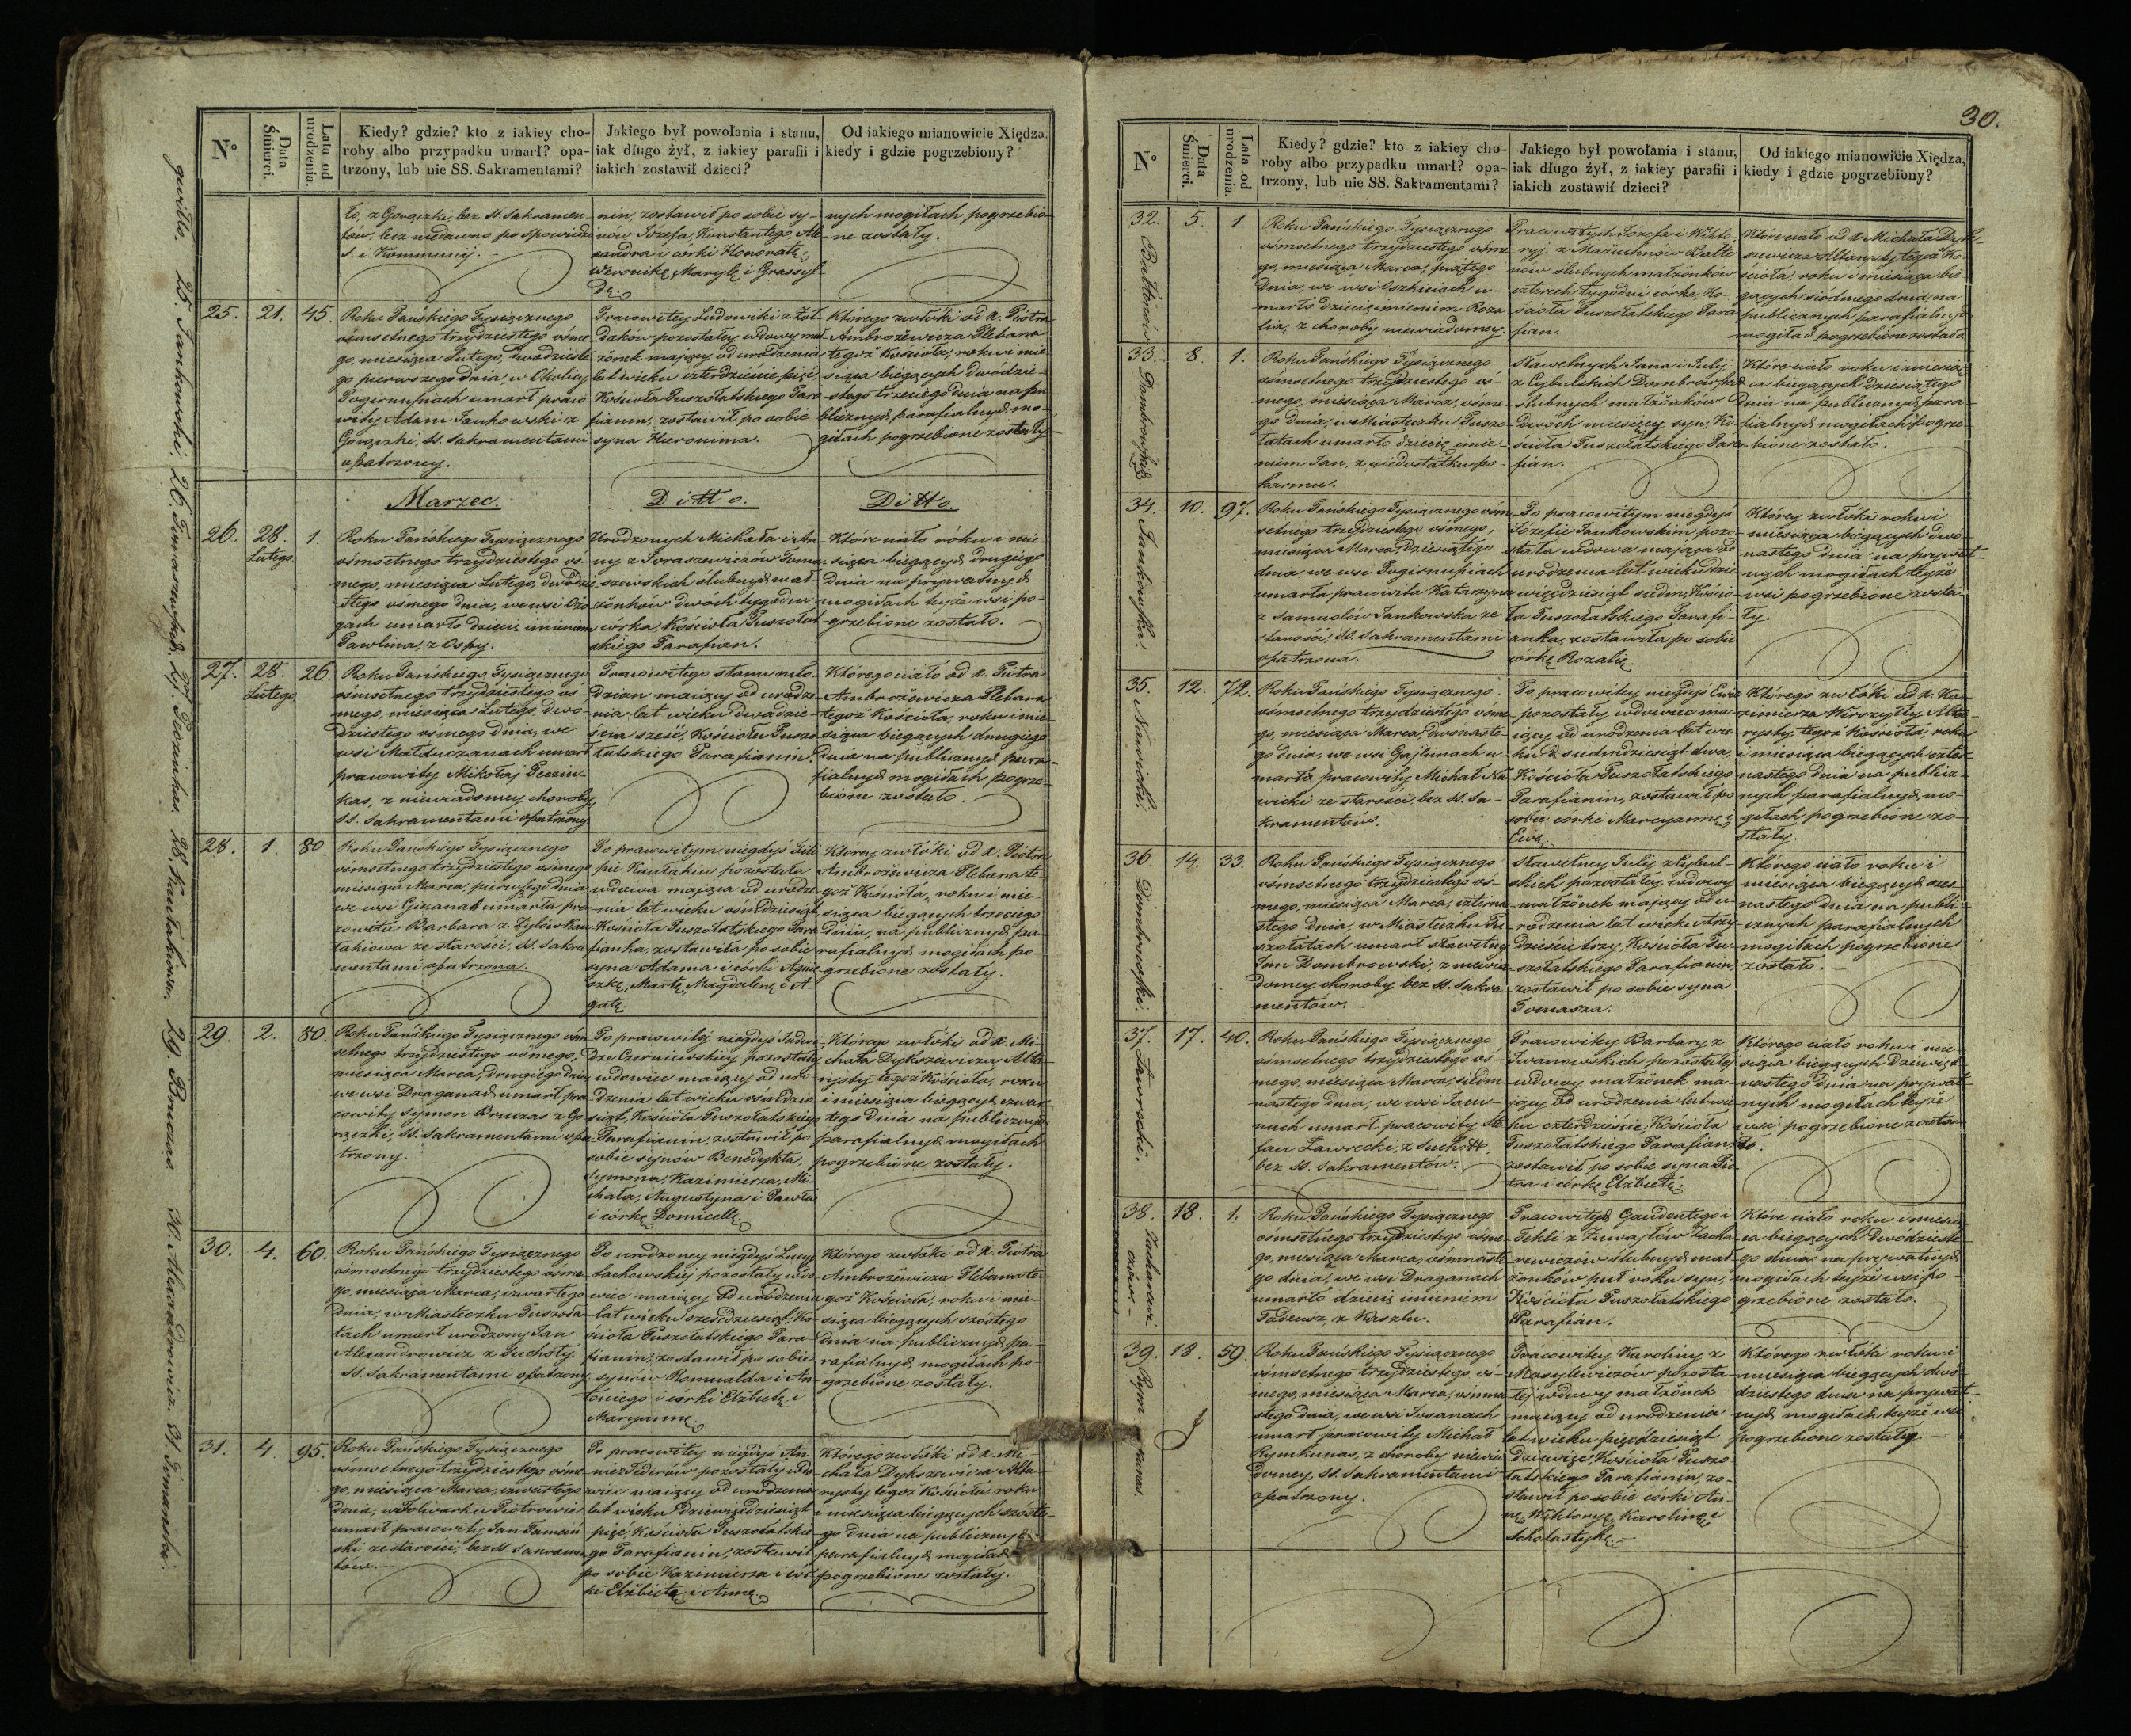 30.
N°
Data Śmierci.
Lata od urodzenia.
Kiedy? gdzie? kto z iakiey cho-
roby albo przypadku umarł? opa-
trzony, lub nie SS. Sakramentami?
Jakiego był powołania i stanu,
iak długo żył, z iakiey parafii i
iakich zostawił dzieci?
Od iakiego mianowicie Xiędza,
kiedy i gdzie pogrzebiony?
ło, z Gorączki, bez SS. Sakramen-
tów, lecz niedawno po Spowiedzi
S. i Kommunij.
nin, zostawił po sobie sy-
nów Józefa, Konstantego, Ale-
xandra i córki Honoratę,
Weronikę, Marylę i Grassyl-
dę.
nych mogiłach pogrzebio-
ne zostały.
25.
21.
45.
Roku Pańskiego Tysiącznego
ośmsetnego trzydziestego ósme-
go, miesiąca Lutego, dwódzieste-
go pierwszego dnia, w Okolicy
Pogirnupiach umarł praco-
wity Adam Jankowski z
Gorączki, SS. Sakramentami
opatrzony.
Pracowitey Ludowiki z Żoł-
daków pozostałey wdowy mał-
żonek mający od urodzenia
lat wieku czterdzieście pięć,
Kościoła Puszołatskiego Para-
fianin, zostawił po sobie
syna Hieronima.
Którego zwłoki od X. Piotra
Ambrożewicza Plebana
tegoż Kościoła, roku i mie-
siąca biegących dwodzie-
stego trzeciego dnia na pu-
blicznych parafialnych mo-
giłach pogrzebione zostały.
Marzec.
Ditto.
Ditto.
26.
28.
Lutego
1.
Roku Pańskiego Tysiącznego
ośmsetnego trzydziestego ós-
mego, miesiąca Lutego, dwódzie-
stego ósmego dnia, we wsi Ożo-
gach umarło dziecię imieniem
Pawlina, z Ospy.
Urodzonych Michała i An-
ny z Soraszewiczów Toma-
szewskich ślubnych mał-
żonków dwóch tygodni
córka, Kościoła Puszołat-
skiego Parafian.
Które ciało róku i mie-
siąca biegących drugiego
dnia na prywatnych
mogiłach teyże wsi po-
grzebione zostało.
27.
28.
Lutego
26.
Roku Pańskiego Tysiącznego
ośmsetnego trzydziestego ós-
mego, miesiąca Lutego, dwó-
dziestego ósmego dnia, we
wsi Małduczanach umarł
pracowity Mikołaj Peczin-
kas, z niewiadomey choroby,
SS. Sakramentami opatrzony
Pracowitego stanu mło-
dzian maiący od urodze-
nia lat wieku dwadzie-
ścia sześć, Kościoła Puszo-
łatskiego Parafianin.
Którego ciało od X. Piotra
Ambrożewicza Plebana
tegoż Kościoła, roku i mie-
siąca biegących drugiego
dnia na publicznych para-
fialnych mogiłach pogrze-
bione zostało.
28.
1.
80.
Roku Pańskiego Tysiącznego
ośmsetnego trzydziestego ósmego
miesiąca Marca, pierwszego dnia
we wsi Gikanach umarła pra-
cowita Barbara z Zylów Kau-
takiowa ze starości, SS. Sakra-
mentami opatrzona.
Po pracowitym niegdyś Fili-
pie Kautakiu pozostała
wdowa mająca od urodze-
nia lat wieku ośmdziesiąt
Kościoła Puszołatskiego Para-
fianka, zostawiła po sobie
syna Adama i córki Agnie-
szkę, Martę, Magdalenę i A-
gatę.
Którey zwłoki od X. Piotra
Ambrożewicza Plebana te-
goż Kościoła, roku i mie-
siąca biegących trzeciego
dnia, na publicznych pa-
rafialnych mogiłach po-
grzebione zostały.
29.
2.
80.
Roku Pańskiego Tysiącznego ośm-
setnego trzydziestego ósmego,
miesiąca Marca, drugiego dnia
we wsi Draganach umarł pra-
cowity Symon Bruczas z Go-
rączki, SS. Sakramentami opa-
trzony.
Po pracowitej niegdyś Jadwi-
dze Czerniewskiey pozostały
wdowiec maiący od uro-
dzenia lat wieku ośmdzie-
siąt, Kościoła Puszołatskiego
Parafianin, zostawił po
sobie synów Benedykta,
Symona, Kazimierza, Mi-
chała, Augustyna i Pawła
i córkę Domicellę.
Którego zwłoki od X. Mi-
chała Dykszewicza Alta-
rysty tegoż Kościoła, roku
i miesiąca biegących czwar-
tego dnia na publicznych
parafialnych mogiłach
pogrzebione zostały.
30.
4.
60.
Roku Pańskiego Tysiącznego
ośmsetnego trzydziestego ósme-
go, miesiąca Marca, czwartego
dnia, w Miasteczku Puszoła-
tach umarł urodzony Jan
Alexandrowicz z Suchoty
SS. Sakramentami opatrzony
Po urodzoney niegdyś Łucyi
Lachowskiéj pozostały wdo-
wiec maiący od urodzenia
lat wieku sześćdziesiąt, Ko-
ścioła Puszołatskiego Para-
fianin, zostawił po sobie
synów Romualda i An-
toniego i córki Elżbietę i
Maryannę.
Którego zwłoki od X. Piotra
Ambrożewicza Plebana te-
goż Kościoła, roku i mie-
siąca biegących szóstego
dnia na publicznych pa-
rafialnych mogiłach po-
grzebione zostały.
31.
4.
95.
Roku Pańskiego Tysiącznego
ośmsetnego trzydziestego ósme-
go, miesiąca Marca, czwartego
dnia, w Folwarku Piotrowie
umarł pracowity Jan Tomań-
ski ze starości, bez SS. Sakramen-
tów.
Po pracowitey niegdyś An-
nie z Federów pozostały wdo-
wiec maiący od urodzenia
lat wieku dziewięćdziesiąt
pięć, Kościoła Puszołatskie-
go Parafianin, zostawił
po sobie Kazimierza i cór-
ki Elżbietę i Annę.
Którego zwłoki od X. Mi-
chała Dykszewicza Alta-
rysty tegoż Kościoła, roku
i miesiąca biegących szóste-
go dnia na publicznych
parafialnych mogiłach
pogrzebione zostały.
25. Jankowski. 26. Tomaszewska. 27. Peczinkas. 28. Kautakiowa. 29. Bruczas. 30. Alexandrowicz. 31. Tomanski.
N°
Data Śmierci.
Lata od urodzenia.
Kiedy? gdzie? kto z iakiey cho-
roby albo przypadku umarł? opa-
trzony, lub nie SS. Sakramentami?
Jakiego był powołania i stanu,
iak długo żył, z iakiey parafii i
iakich zostawił dzieci?
Od iakiego mianowicie Xiędza,
kiedy i gdzie pogrzebiony?
32.
5.
1.
Roku Pańskiego Tysiącznego
ośmsetnego trzydziestego ósme-
go, miesiąca Marca, piątego
dnia, we wsi Oszkiciach u-
marło dziecię imieniem Roza-
lia, z choroby niewiadomey.
Pracowitych Józefa i Wikto-
ryj z Mażuchnów Batte-
nów ślubnych małżonków
czterech tygodni córka, Ko-
ścioła Puszołatskiego Para-
fian.
Które ciało od X. Michała Dyk-
szewicza Altarysty tegoż Ko-
ścioła, roku i miesiąca bie-
gących siódmego dnia, na
publicznych parafialnych
mogiłach pogrzebione zostało.
33.
8.
1.
Roku Pańskiego Tysiącznego
ośmsetnego trzydziestego ós-
mego, miesiąca Marca, ósme-
go dnia, w Miasteczku Puszo-
łatach umarło dziecię imie-
niem Jan, z niedostatku po-
karmu.
Sławetnych Jana i Julij
z Cybulskich Dombrowskich
ślubnych małżonków
dwóch miesięcy syn, Ko-
ścioła Puszołatskiego Para-
fian.
Które ciało roku i miesią-
ca biegących dziesiątego
dnia na publicznych para-
fialnych mogiłach pogrze-
bione zostało.
34.
10.
97.
Roku Pańskiego Tysiącznego ośm-
setnego trzydziestego ósmego,
miesiąca Marca, dziesiątego
dnia, we wsi Pogirnupiach
umarła pracowita Katarzyna
z Samuolów Jankowska ze
starości, SS. Sakramentami
opatrzona.
Po pracowitym niegdyś
Józefie Jankowskim pozo-
stała wdowa mająca od
urodzenia lat wieku dzie-
więćdziesiąt siedm, Kościo-
ła Puszołatskiego Parafi-
anka, zostawiła po sobie
córkę Rozalię.
Którey zwłóki roku i
miesiąca biegących dwó-
nastego dnia na prywat-
nych mogiłach teyże
wsi pogrzebione zosta-
ły.
35.
12.
72.
Roku Pańskiego Tysiącznego
ośmsetnego trzydziestego ósme-
go, miesiąca Marca, dwónaste-
go dnia, we wsi Gajlunach u-
marł pracowity Michał Na-
wicki ze starości, bez SS. Sa-
kramentów.
Po pracowitey niegdyś Ewie
pozostały wdowiec ma-
iący od urodzenia lat wie-
ku siedmdziesiąt dwa,
Kościoła Puszołatskiego
Parafianin, zostawił po
sobie córki Maryannę i
Ewę.
Którego zwłóki od X. Ka-
zimierza Wirszyłły Alta-
rysty tegoż Kościoła, roku
i miesiąca biegących czter-
nastego dnia na publicz-
nych parafialnych mo-
giłach pogrzebione zo-
stały.
36.
14.
33.
Roku Pańskiego Tysiącznego
ośmsetnego trzydziestego ós-
mego, miesiąca Marca, czterna-
stego dnia, w Miasteczku Pu-
szołatach umarł sławetny
Jan Dombrowski, z niewia-
domey choroby, bez SS. Sakra-
mentów.
Sławetney Julij z Cybul-
skich pozostałey wdowy
małżonek mający od u-
rodzenia lat wieku trzy-
dzieście trzy, Kościoła Pu-
szołatskiego Parafianin,
zostawił po sobie syna
Tomasza.
Którego ciało roku i
miesiąca biegących szes-
nastego dnia na publi-
cznych parafialnych
mogiłach pogrzebione
zostało.
37.
17.
40.
Roku Pańskiego Tysiącznego
ośmsetnego trzydziestego ós-
mego, miesiąca Marca, siedm-
nastego dnia, we wsi Jasiu-
nach umarł pracowity Ste-
fan Ławrecki, z Suchott,
bez SS. Sakramentów.
Pracowitey Barbary z
Iwanowskich pozostałéj
wdowy małżonek ma-
jący od urodzenia lat wie-
ku czterdzieście, Kościoła
Puszołatskiego Parafianin,
zostawił po sobie syna Pio-
tra i córkę Elżbietę.
Którego ciało roku i mie-
siąca biegących dziewięt-
nastego dnia na prywat-
nych mogiłach teyże
wsi pogrzebione zosta-
ło.
38.
18.
1.
Roku Pańskiego Tysiącznego
ośmsetnego trzydziestego ósme-
go, miesiąca Marca, ośmnaste-
go dnia, we wsi Draganach
umarło dziecię imieniem
Tadeusz, z Kaszlu.
Pracowitych Gaudentego i
Tekli z Żuwajłów Zacha-
rewiczów ślubnych mał-
żonków puł roku syn,
Kościoła Puszołatskiego
Parafian.
Które ciało roku i miesią-
ca biegących dwódzieste-
go dnia na prywatnych
mogiłach teyże wsi po-
grzebione zostało.
39.
18.
59.
Roku Pańskiego Tysiącznego
ośmsetnego trzydziestego ós-
mego, miesiąca Marca, ośmna-
stego dnia, we wsi Iwanach
umarł pracowity Michał
Rymkunas, z choroby niewia-
domey, SS. Sakramentami
opatrzony.
Pracowitey Karoliny z
Masylewiczów pozosta-
łéj wdowy małżonek
maiący od urodzenia
lat wieku pięćdziesiąt
dziewięć, Kościoła Puszo-
łatskiego Parafianin, zo-
stawił po sobie córki An-
nę, Wiktoryę, Karolinę i
Scholastykę.
Którego zwłoki roku i
miesiąca biegących dwó-
dziestego dnia na prywat-
nych mogiłach teyże wsi
pogrzebione zostały.
Battenów.
Dombrowski.
Jankowska.
Nawicki.
Dombrowski.
Ławrecki.
Zacharewi-
czów.
Rym-
kunas.